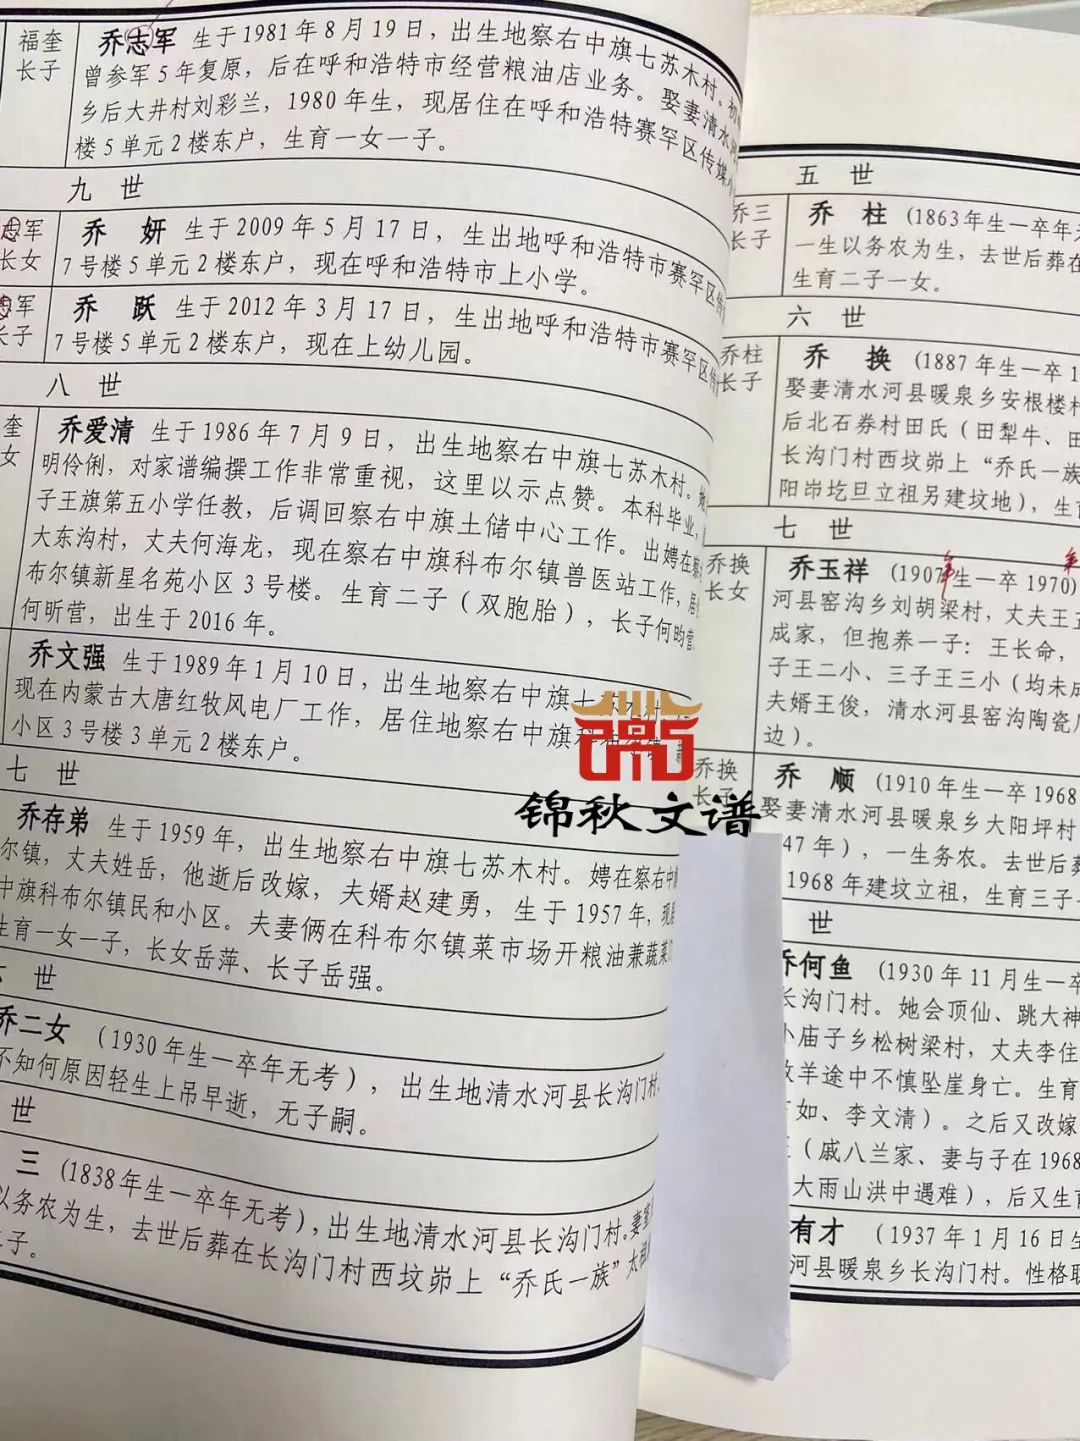 福奎
长子
乔志军 生于1981年8月19日，出生地察右中旗七苏木村。初
曾参军5年复原，后在呼和浩特市经营粮油店业务。娶妻清水河
乡后大井村刘彩兰，1980年生，现居住在呼和浩特赛罕区传媒小
楼5单元2楼东户，生育一女一子。
九 世
志军
长女
乔 妍 生于2009年5月17日，生出地呼和浩特市赛罕区传
7号楼5单元2楼东户，现在呼和浩特市上小学。
志军
长子
乔 跃 生于2012年3月17日，生出地呼和浩特市赛罕区传
7号楼5单元2楼东户，现在上幼儿园。
八 世
奎
女
乔爱清 生于1986年7月9日，出生地察右中旗七苏木村。她
明伶俐，对家谱编撰工作非常重视，这里以示点赞。本科毕业，
子王旗第五小学任教，后调回察右中旗土储中心工作。出娉在察
大东沟村，丈夫何海龙，现在察右中旗科布尔镇兽医站工作，居
布尔镇新星名苑小区3号楼。生育二子（双胞胎），长子何昀营
何昕营，出生于2016年。
乔文强 生于1989年1月10日，出生地察右中旗七苏木村
现在内蒙古大唐红牧风电厂工作，居住地察右中旗科布尔镇新
小区3号楼3单元2楼东户。
七 世
乔存弟 生于1959年，出生地察右中旗七苏木村。娉在察右中
尔镇，丈夫姓岳，他逝后改嫁，夫婿赵建勇，生于1957年，现居
中旗科布尔镇民和小区。夫妻俩在科布尔镇菜市场开粮油兼蔬菜门
生育一女一子，长女岳萍、长子岳强。
六 世
乔二女 （1930年生一卒年无考），出生地清水河县长沟门村
不知何原因轻生上吊早逝，无子嗣。
世
三 (1838年生一卒年无考)，出生地清水河县长沟门村。妻室
以务农为生，去世后葬在长沟门村西坟峁上“乔氏一族”太祖
子。
五 世
乔三
长子
乔 柱 (1863年生一卒年无
一生以务农为生，去世后葬在
生育二子一女。
六 世
乔柱
长子
乔 换 （1887年生一卒1
娶妻清水河县暖泉乡安根楼村
后北石券村田氏（田犁牛、田
长沟门村西坟峁上“乔氏一族
阳峁圪旦立祖另建坟地），生育
七 世
乔换
长女
乔玉祥 （1907年生一卒1970）
年
河县窑沟乡刘胡梁村，丈夫王五
成家，但抱养一子：王长命，
子王二小、三子王三小（均未成
夫婿王俊，清水河县窑沟陶瓷厂
边）。
乔换
长子
乔 顺 （1910年生一卒1968
娶妻清水河县暖泉乡大阳坪村
47年），一生务农。去世后葬
1968年建坟立祖，生育三子一
世
乔何鱼 （1930年11月生一卒
长沟门村。她会顶仙、跳大神
小庙子乡松树梁村，丈夫李住
放羊途中不慎坠崖身亡。生育
如、李文清）。之后又改嫁
（戚八兰家、妻与子在1968
大雨山洪中遇难），后又生育
有才 （1937年1月16日生
河县暖泉乡长沟门村。性格耿
锦秋文谱